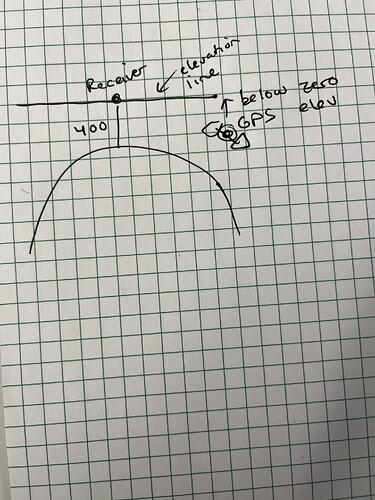 Receiver
elevation
line
400
below zero
GPS elev